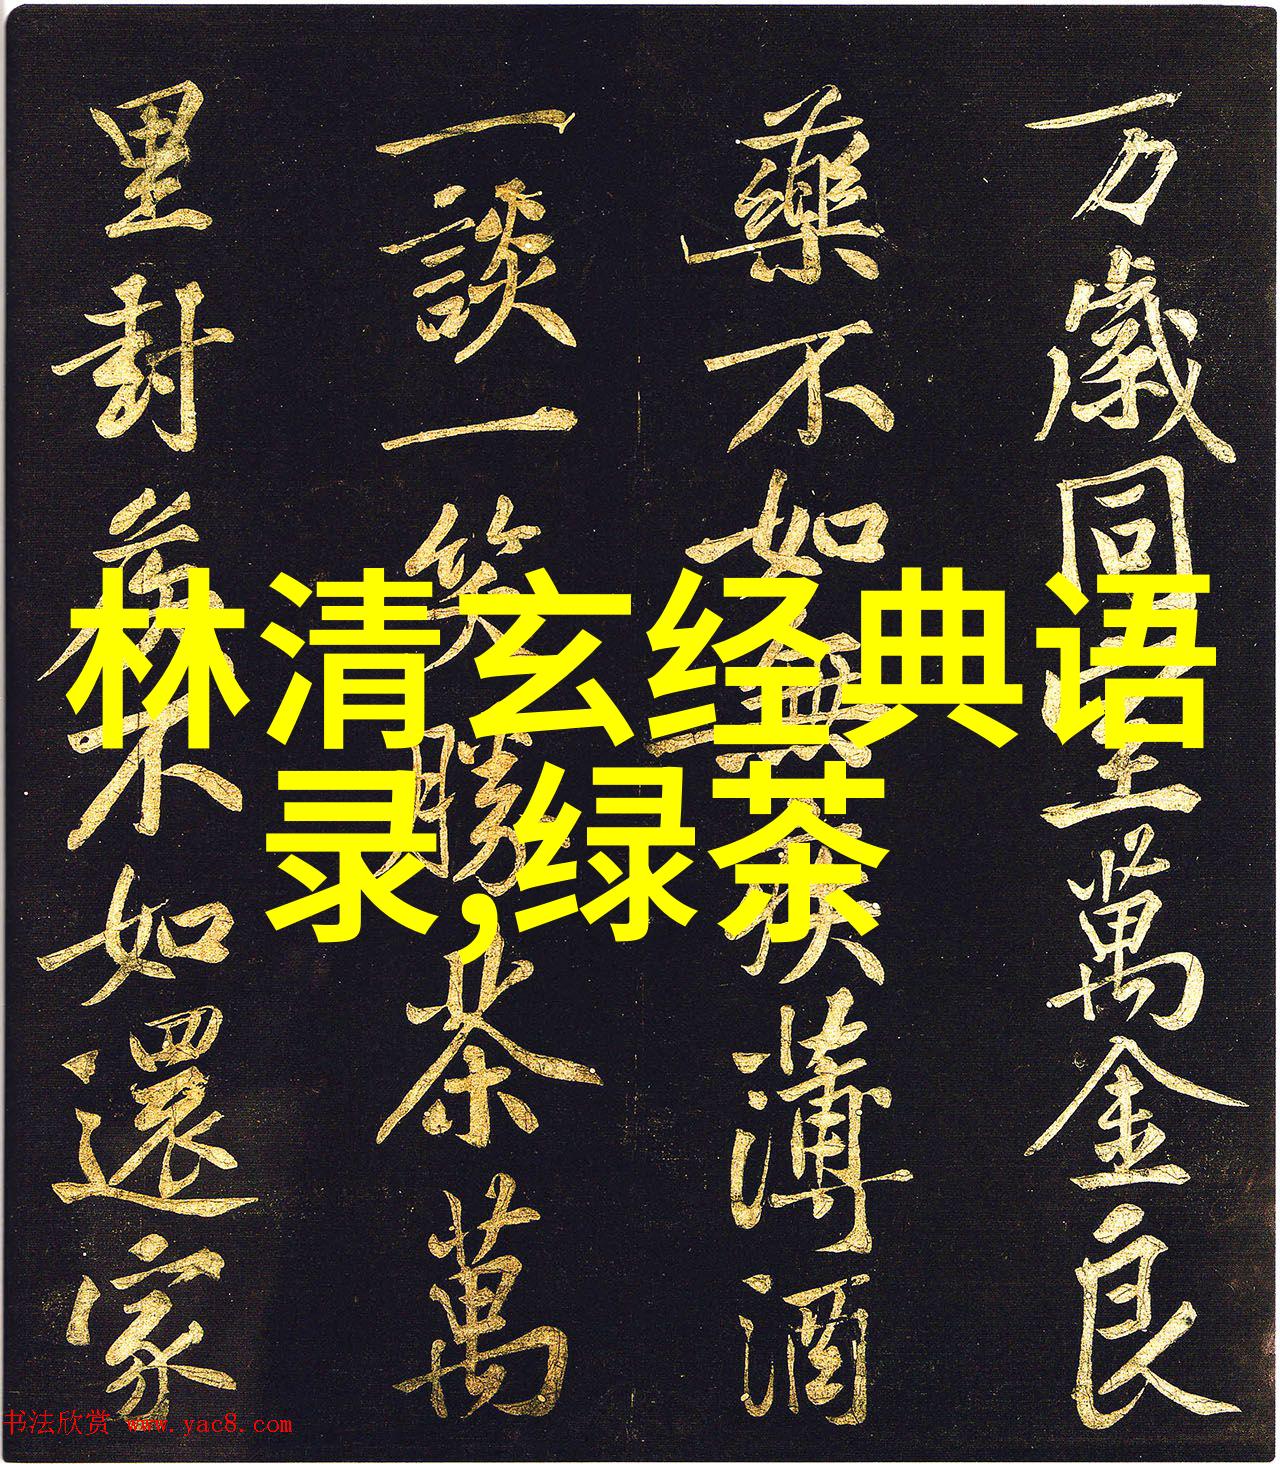 万歲同一丘萬金良
藥不如無疾薄酒
一談一笑勝茶萬
里封矦不如還家
林清玄经典语
录,绿茶
书法欣赏 www.yac8.com